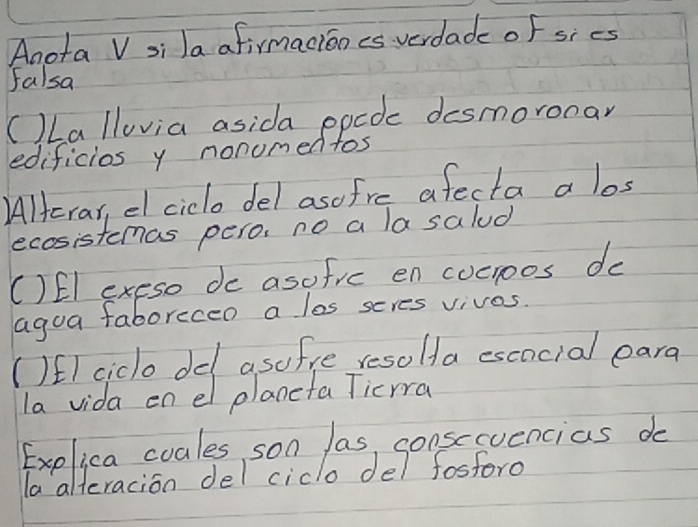 Anota V si la afirmación es verdade o F si es
falsa
( ) La lluvia asida ppede desmoronar
edificios y monumentos
) Alterar, el ciclo del asufre afecta a los
ecosistemas pero. no a la salud
( ) El exeso de asufre en cuerpos de
agua faboreceo a los seres vivos.
( ) El ciclo del asufre resulta escncial para
la vida en el planeta Tierra
Explica cuales son las consccuencias de
la alteración del ciclo del fosforo